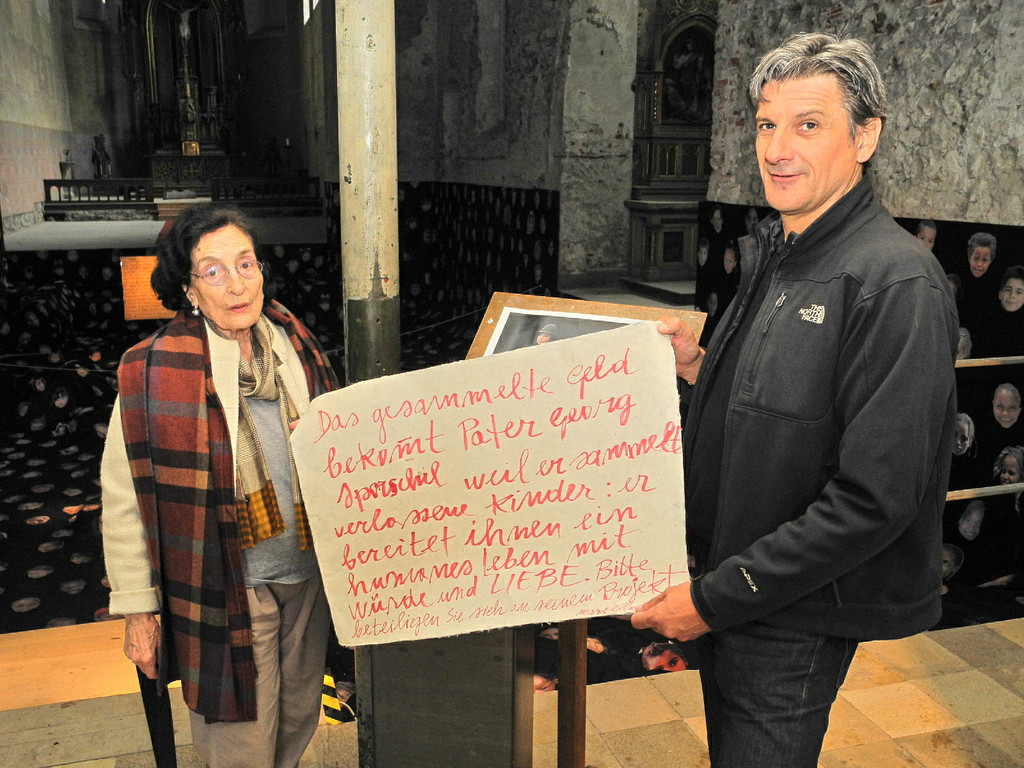 Das gesammelte Geld
bekom̄t Pater Georg
Sporschil weil er sammelt
verlossene Kinder: er
bereitet ihnen ein
humanes Leben mit
Würde und LIEBE. Bitte
beteiligen Sie sich an seinem Projekt
THE
NORTH
FACE
APEX